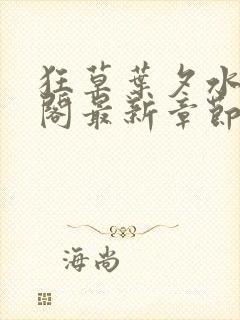 狂草葉夕水
閣最新章節
海尚